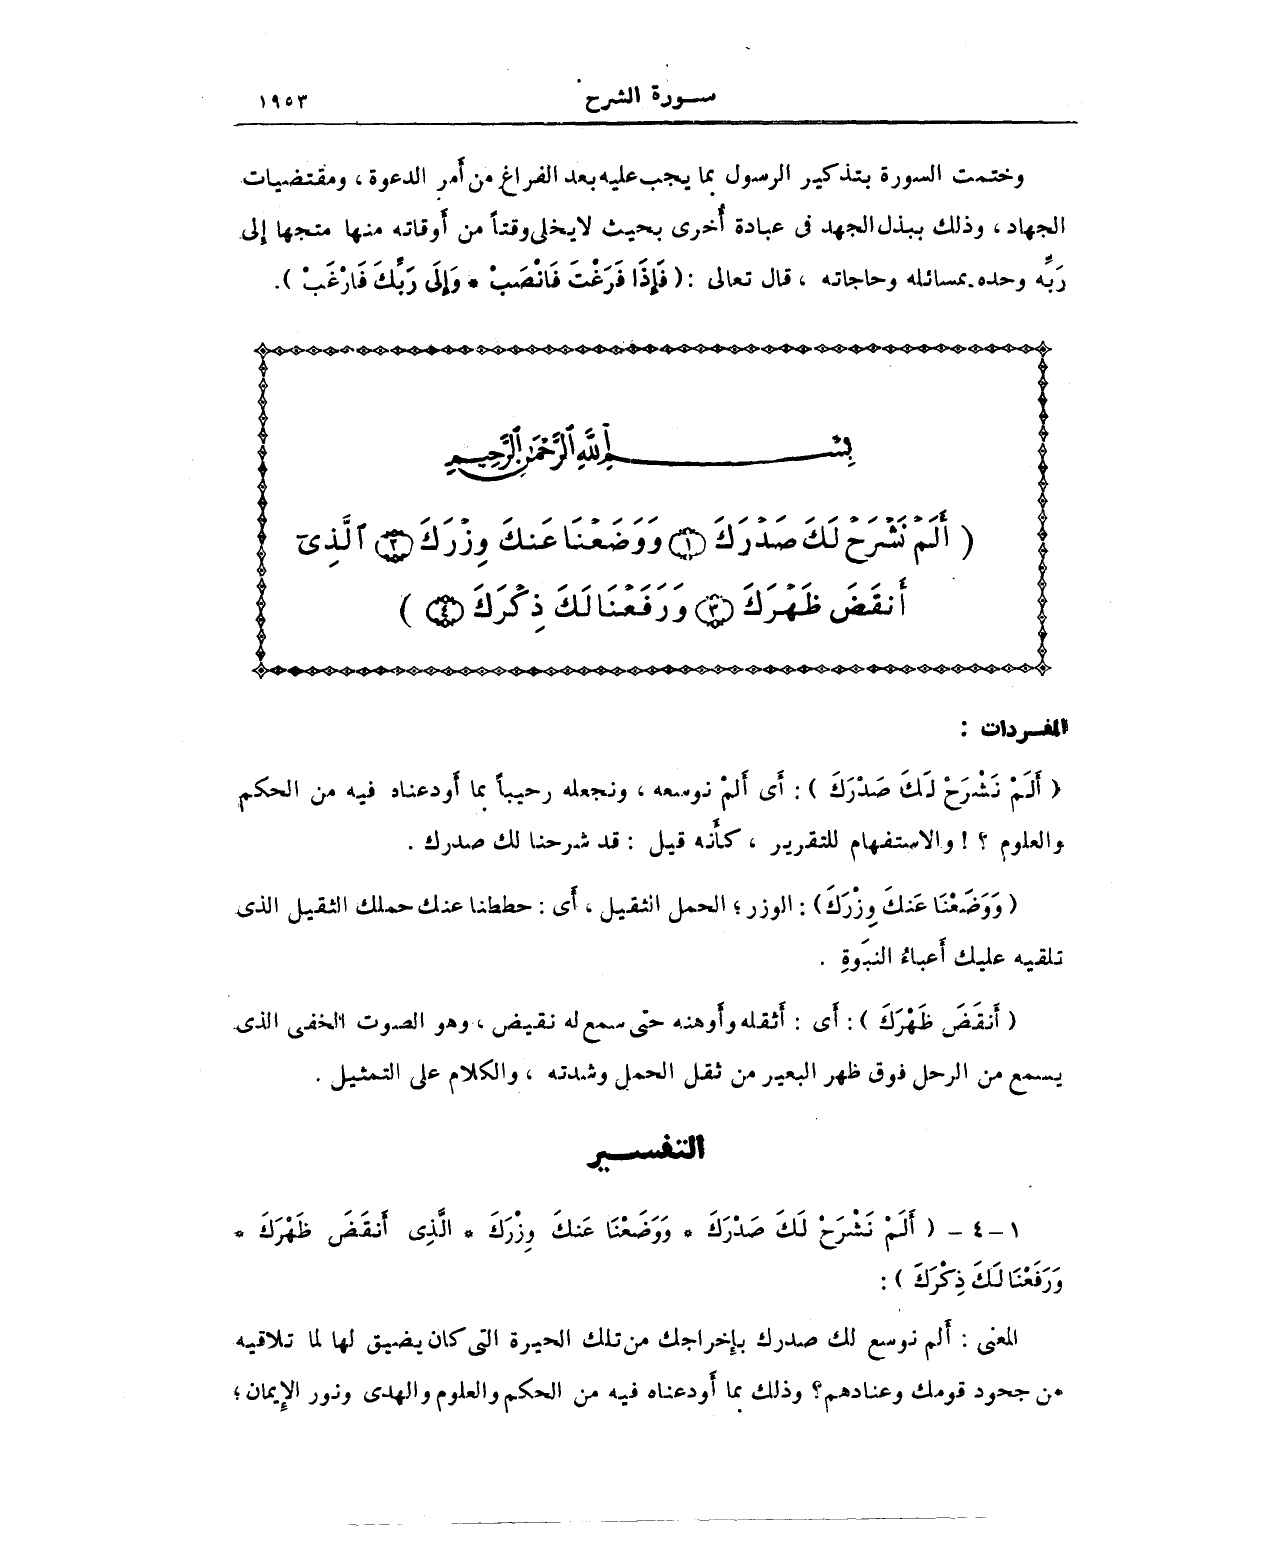 سورة الشرح ١٩٥٣
وختمت السورة بتذكير الرسول بما يجب عليه بعد الفراغ من أمر الدعوة ، ومقتضيات
الجهاد ، وذلك ببذل الجهد فى عبادة أُخرى بحيث لا يخلى وقتاً من أوقاته منها متجها إلى
رَبِّه وحده بمسائله وحاجاته ، قال تعالى : ( فَإِذَا فَرَغْتَ فَانْصَبْ * وَإِلَى رَبِّكَ فَارْغَبْ ).
بِسْمِ اللَّهِ الرَّحْمَٰنِ الرَّحِيمِ
( أَلَمْ نَشْرَحْ لَكَ صَدْرَكَ ١ وَوَضَعْنَا عَنكَ وِزْرَكَ ٢ ٱلَّذِىٓ
أَنقَضَ ظَهْرَكَ ٣ وَرَفَعْنَا لَكَ ذِكْرَكَ ٤ )
المفردات :
( أَلَمْ نَشْرَحْ لَكَ صَدْرَكَ ) : أى أَلمْ نوسعه ، ونجعله رحيباً بما أودعناه فيه من الحكم
والعلوم ؟ ! والاستفهام للتقرير ، كأَنه قيل : قد شرحنا لك صدرك .
( وَوَضَعْنَا عَنكَ وِزْرَكَ) : الوزر ؛ الحمل الثقيل ، أَى : حططنا عنك حملك الثقيل الذى
تلقيه عليك أَعباءُ النبَوةِ .
( أَنقَضَ ظَهْرَكَ ) : أَى : أَثقله وأَوهنه حتى سمع له نقيض ، وهو الصوت الخفى الذى
يسمع من الرحل فوق ظهر البعير من ثقل الحمل وشدته ، والكلام على التمثيل .
التفسير
١ - ٤ - ( أَلَمْ نَشْرَحْ لَكَ صَدْرَكَ * وَوَضَعْنَا عَنكَ وِزْرَكَ * الَّذِى أَنقَضَ ظَهْرَكَ *
وَرَفَعْنَا لَكَ ذِكْرَكَ ) :
المعنى : أَلم نوسع لك صدرك بإخراجك من تلك الحيرة التى كان يضيق لها لما تلاقيه
من جحود قومك وعنادهم؟ وذلك بما أَودعناه فيه من الحكم والعلوم والهدى ونور الإِيمان ؛